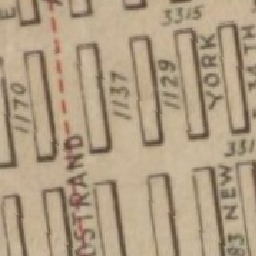 3315
1170
1137
1129
YORK
34 TH
331
OSTRAND
83 NEW